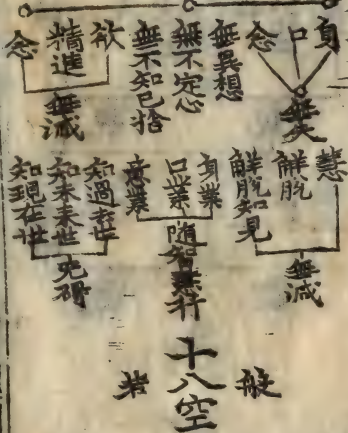 身
口
念
無失
無異想
無不定心
無不知已捨
欲
精進
念
無減
慧
解脫
解脫知見
無減
身業
口業
意業
随智慧行
知過去世
知未来世
知現在世
无碍
十八空
般
若